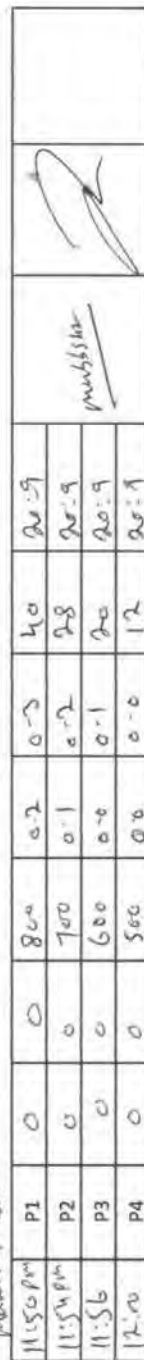 11:50 pm P1 0 0 800 0.2 0.3 40 20.9
11:54 pm P2 0 0 700 0.1 0.2 28 20.9
11:56 P3 0 0 600 0.0 0.1 20 20.9
12:00 P4 0 0 500 0.0 0.0 12 20.9